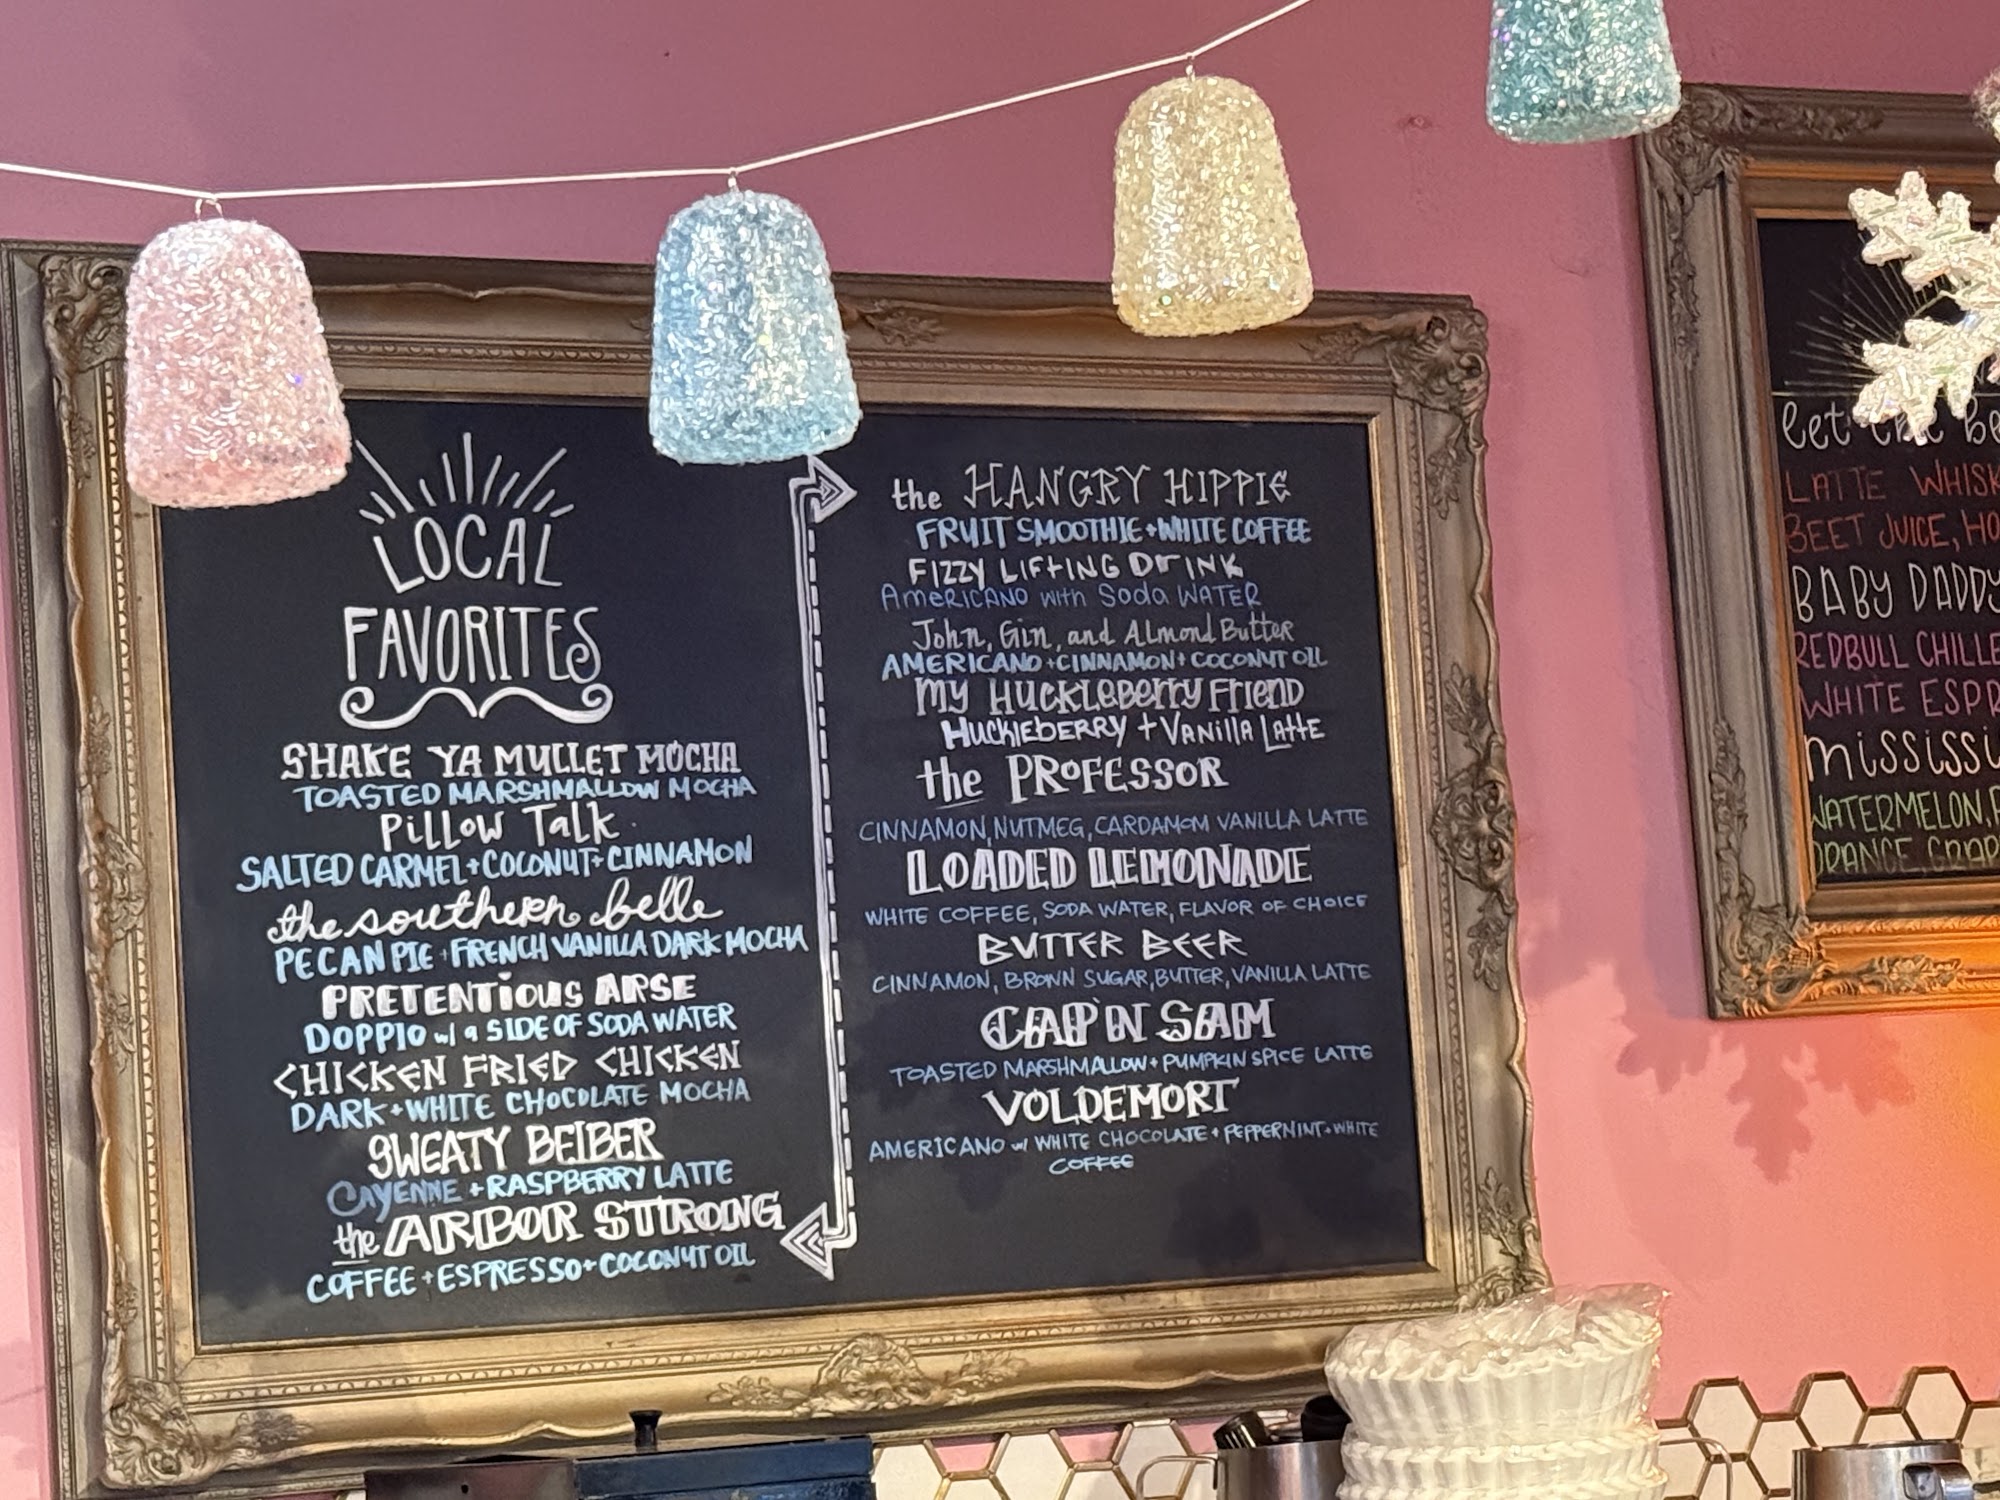 LOCAL
FAVORITES
SHAKE YA MULLET MOCHA
TOASTED MARSHMALLOW MOCHA
PILLOW TALK
SALTED CARMEL + COCONUT + CINNAMON
the southern belle
PECAN PIE + FRENCH VANILLA DARK MOCHA
PRETENTIOUS ARSE
DOPPIO w/ a SIDE OF SODA WATER
CHICKEN FRIED CHICKEN
DARK + WHITE CHOCOLATE MOCHA
SWEATY BEIBER
CAYENNE + RASPBERRY LATTE
the ARBOR STRONG
COFFEE + ESPRESSO + COCONUT OIL
the HANGRY HIPPIE
FRUIT SMOOTHIE + WHITE COFFEE
FIZZY LIFTING DRINK
AMERICANO with Soda WATER
John, Gin, and Almond Butter
AMERICANO + CINNAMON + COCONUT OIL
MY HUCKLEBERRY FRIEND
HUCKLEBERRY + VANILLA LATTE
the PROFESSOR
CINNAMON, NUTMEG, CARDAMOM VANILLA LATTE
LOADED LEMONADE
WHITE COFFEE, SODA WATER, FLAVOR OF CHOICE
BUTTER BEER
CINNAMON, BROWN SUGAR, BUTTER, VANILLA LATTE
CAP'N SAM
TOASTED MARSHMALLOW + PUMPKIN SPICE LATTE
VOLDEMORT
AMERICANO w/ WHITE CHOCOLATE + PEPPERMINT + WHITE
COFFEE
let the
LATTE
BEET JUICE,
BABY DADDY
REDBULL
WHITE
WATERMELON,
ORANGE,